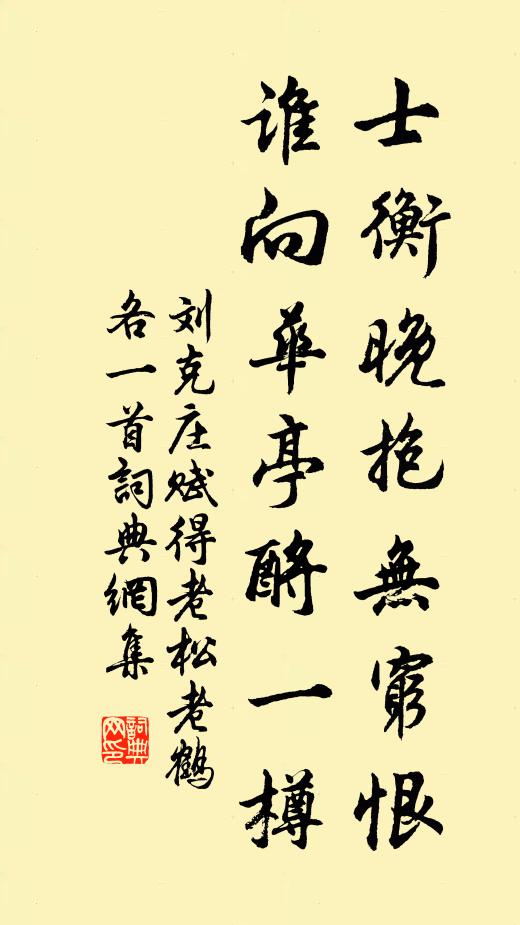 士衡晚抱無窮恨
誰向華亭酹一樽
刘克庄赋得老松老鶴
各一首詞典網集
詞典
网印